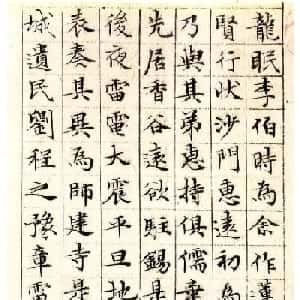 龍眠李伯時為余作蓮
賢行狀沙門惠遠初為
乃與其弟惠持俱儒
先居香谷遠欲駐錫是
後夜雷電大震平旦地
表奏其異為師建寺是
城遺民劉程之豫章雷